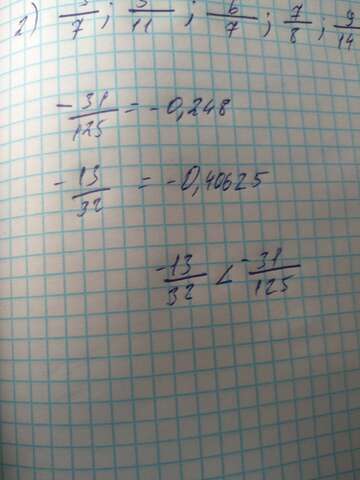 2) /7; /11; 6/7; 7/8; 9/14
-31/125 = -0,248
-13/32 = -0,40625
-13/32 < -31/125